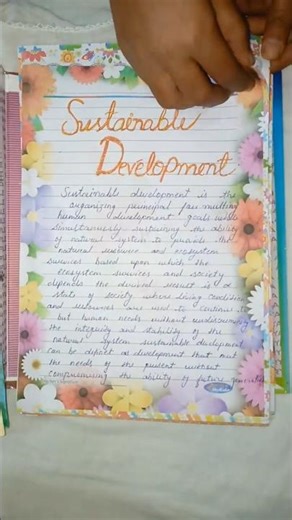 Sustainable
Development
Sustainable development is the
organizing principal for meeting
human development goals while
simultaneously sustaining the ability
of natural system to provide the
natural resources and ecosystem
services based upon which the
ecosystem services and society
depends the desired result is a
state of society where living conditions
and resources are used to continue to
but human needs without undermining
the integrity and stability of the
natural system sustainable development
can be depict as development that meet
the needs of the present without
compromising the ability of future generation